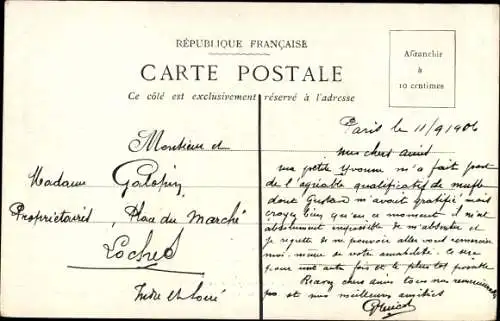 RÉPUBLIQUE FRANÇAISE
CARTE POSTALE
Ce côté est exclusivement réservé à l'adresse
Affranchir
à
10 centimes
Monsieur et
Madame Galopin
Propriétaires, Place du Marché
Loches
Indre et Loire
Paris le 11/9 1906
mes chers amis
ma petite Yvonne m'a fait part
de l'agréable qualificatif de mufle
dont Gustave m'avait gratifié, mais
croyez bien qu'en ce moment il m'est
absolument impossible de m'absenter et
je regrette de ne pouvoir aller vous remercier
moi-même de votre amabilité. Ce sera
pour une autre fois et le plus tôt possible
chers amis tous nos remerciements
et nos meilleurs amitiés